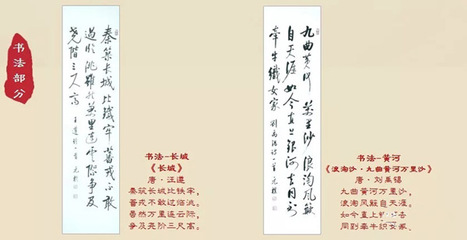 书法部分
秦筑长城比铁牢蕃戎不敢
过临洮虽然万里连云际争及
尧阶三尺高
九曲黄河万里沙浪淘风簸
自天涯如今直上银河去同到
牵牛织女家
书法-长城
《长城》
唐·汪遵
秦筑长城比铁牢，
蕃戎不敢过临洮。
虽然万里连云际，
争及尧阶三尺高。
书法-黄河
《浪淘沙·九曲黄河万里沙》
唐·刘禹锡
九曲黄河万里沙，
浪淘风簸自天涯。
如今直上银河去，
同到牵牛织女家。